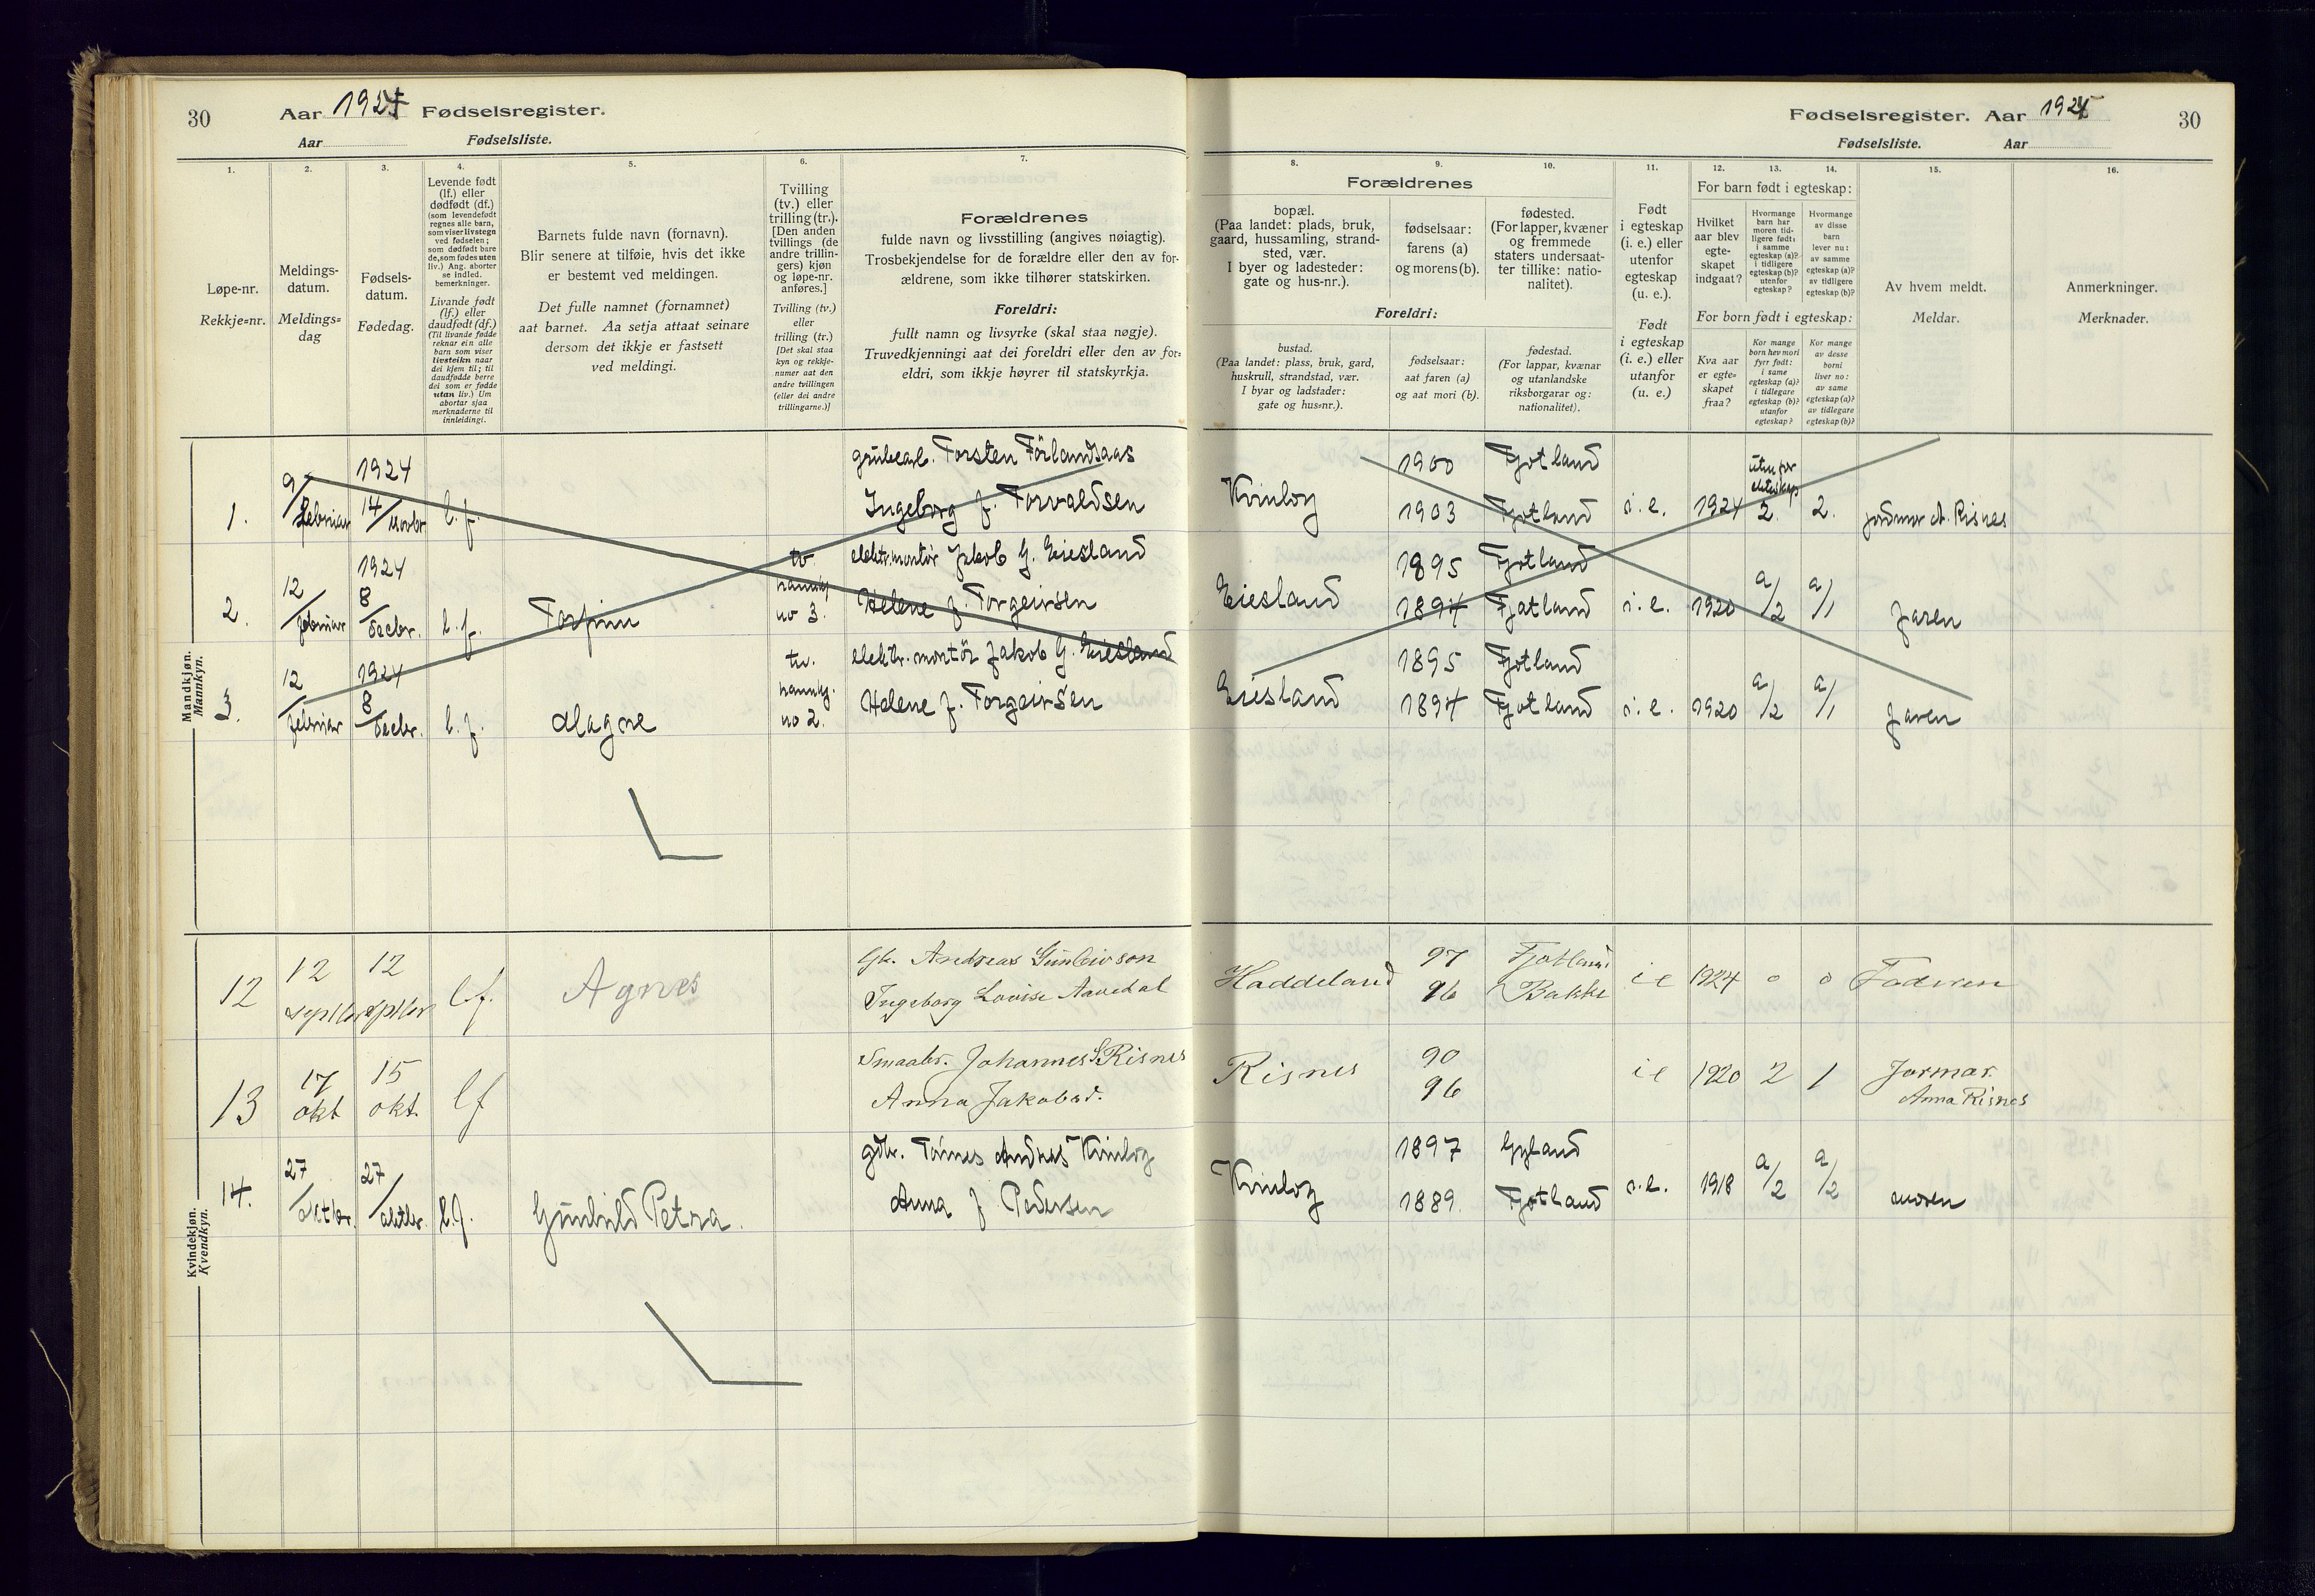 30
Aar 1924 Fødselsregister.
Aar Fødselsliste.
1.
2.
3.
4.
5.
6.
7.
Løpe-nr.
Rekkje=nr.
Meldings-
datum.
Meldings=
dag
Fødsels-
datum.
Fødedag.
Levende født
(lf.) eller
dødfødt (df.)
(som levendefødt
regnes alle barn,
som viser livstegn
ved fødselen;
som dødfødt bare
de, som fødes uten
liv.) Ang. aborter
se indled.
bemerkninger.
Livande født
(lf.) eller
daudfødt (df.)
(Til livande fødde
reknar ein alle
barn som viser
livsteikn naar
dei kjem til; til
daudfødde berre
dei som er fødde
utan liv.) Um
abortar sjaa
merknaderne til
innleidingi.
Barnets fulde navn (fornavn).
Blir senere at tilføie, hvis det ikke
er bestemt ved meldingen.
Det fulle namnet (fornamnet)
aat barnet. Aa setja attaat seinare
dersom det ikkje er fastsett
ved meldingi.
Tvilling
(tv.) eller
trilling (tr.).
[Den anden
tvillings (de
andre trillin-
gers) kjøn
og løpe-nr.
anføres.]
Tvilling (tv.)
eller
trilling (tr.)
[Det skal staa
kyn og rekkje-
numer aat den
andre tvillingen
(eller dei andre
trillingarne.)]
Forældrenes
fulde navn og livsstilling (angives nøiagtig).
Trosbekjendelse for de forældre eller den av for-
ældrene, som ikke tilhører statskirken.
Foreldri:
fullt namn og livsyrke (skal staa nøgje).
Truvedkjenningi aat dei foreldri eller den av for=
eldri, som ikkje høyrer til statskyrkja.
Mandkjøn.
Mannkyn.
1. 9/Februar 1924 14/Novbr. l. f.
grubearb. Torsten Förlandsaas
Ingeborg f. Torvaldsen
2. 12/februar 1924 8/Decbr. l. f. Torfinn tv. no 3.
elektr. montør Jakob G. Eiesland
Helene f. Torgeirsen
3. 12/februar 1924 8/Decbr. l. f. Magne tv. no 2.
elektr. montör Jakob G. Eiesland
Helene f. Torgeirsen
Kvindekjøn.
Kvendkyn.
12 12 septbr 12 septbr lf. Agnes
Gb. Andreas Gunleivson
Ingeborg Lovise Aavedal
13 17 okt 15 okt. lf
Smaabr. Johannes S. Risnes
Anna Jakobsd.
14. 27/oktbr. 27/oktbr. l.f. Gunhild Petra.
gdbr. Tönnes Andreas Kvinlog
Anna f Pedersen
Fødselsregister. Aar 1924
30
Fødselsliste. Aar
8.
9.
10.
11.
12.
13.
14.
15.
16.
Forældrenes
bopæl.
(Paa landet: plads, bruk,
gaard, hussamling, strand-
sted, vær.
I byer og ladesteder:
gate og hus-nr.).
fødselsaar:
farens (a)
og morens (b).
fødested.
(For lapper, kvæner
og fremmede
staters undersaat-
ter tillike: natio-
nalitet).
Foreldri:
bustad.
(Paa landet: plass, bruk, gard,
huskrull, strandstad, vær.
I byar og ladstader:
gate og hus=nr.).
fødselsaar:
aat faren (a)
og aat mori (b).
fødestad.
(For lappar, kvænar
og utanlandske
riksborgarar og:
nationalitet).
Født
i egteskap
(i. e.) eller
utenfor
egteskap
(u. e.).
Født
i egteskap
(i. e.) eller
utanfor
(u. e.)
For barn født i egteskap:
Hvilket
aar blev
egte-
skapet
indgaat?
Hvormange
barn har
moren tid-
ligere født:
i samme
egteskap (a)?
i tidligere
egteskap (b)?
utenfor
egteskap?
Hvormange
av disse
barn
lever nu:
av samme
egteskap (a)?
av tidligere
egteskap (b)?
For born født i egteskap:
Kva aar
er egte=
skapet
fraa?
Kor mange
born hev mori
fyr født:
i same
egteskap (a)?
i tidlegare
egteskap (b)?
utanfor
egteskap?
Kor mange
av desse
borni
liver no:
av same
egteskap (a)?
av tidlegare
egteskap (b)?
Av hvem meldt.
Meldar.
Anmerkninger.
Merknader.
Kvinlog 1900 Fjotland
1903 Fjotland i. e. 1924 2. 2. jordmor A. Risnes
Eiesland 1895 Fjotland
1894 Fjotland i. e. 1920 a/2 a/1 faren
Eiesland 1895 Fjotland
1894 Fjotland i. e. 1920 a/2 a/1 faren
Haddeland 97 Fjotland
96 Bakke i e 1924 0 0 Faderen
Risnes 90
96 i e 1920 2 1 Jormor.
Anna Risnes
Kvinlog 1897 Gyland
1889. Fjotland i. e. 1918 a/2 a/2 moren